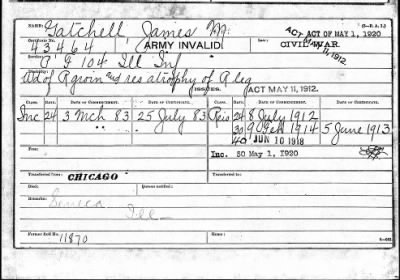 NAME: Gatchell, James M. ACT OF MAY 1, 1920
Certificate No.
43464 ARMY INVALID CIVIL WAR. ACT MAY 11, 1912.
A, G 104 Ill Inf
Wd of R groin and res atrophy of R leg
ISSUES. ACT MAY 11, 1912.
CLASS. RATE. DATE OF COMMENCEMENT. DATE OF CERTIFICATE. CLASS. RATE. DATE OF COMMENCEMENT. DATE OF CERTIFICATE.
Inc 24 3 Mch 83 25 July 83 Reis 24 8 July 1912
30 9 1914 5 June 1913
40 JUN 10 1918
From: Inc. 50 May 1, 1920
Transferred from: CHICAGO Transferred to:
Died: Bureau notified:
Remarks: Seneca
Ill
Former Roll No. 11870